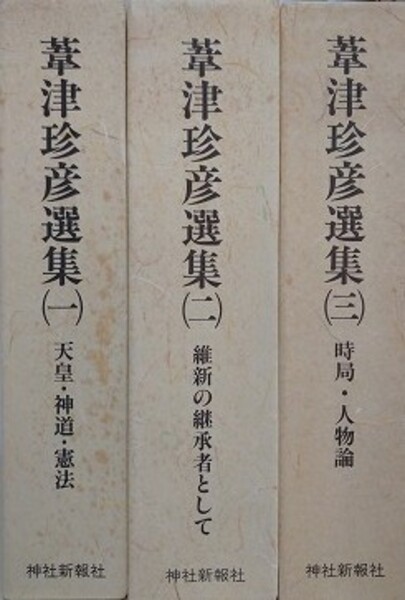 葦津珍彦選集(一)
天皇・神道・憲法
神社新報社
葦津珍彦選集(二)
維新の継承者として
神社新報社
葦津珍彦選集(三)
時局・人物論
神社新報社